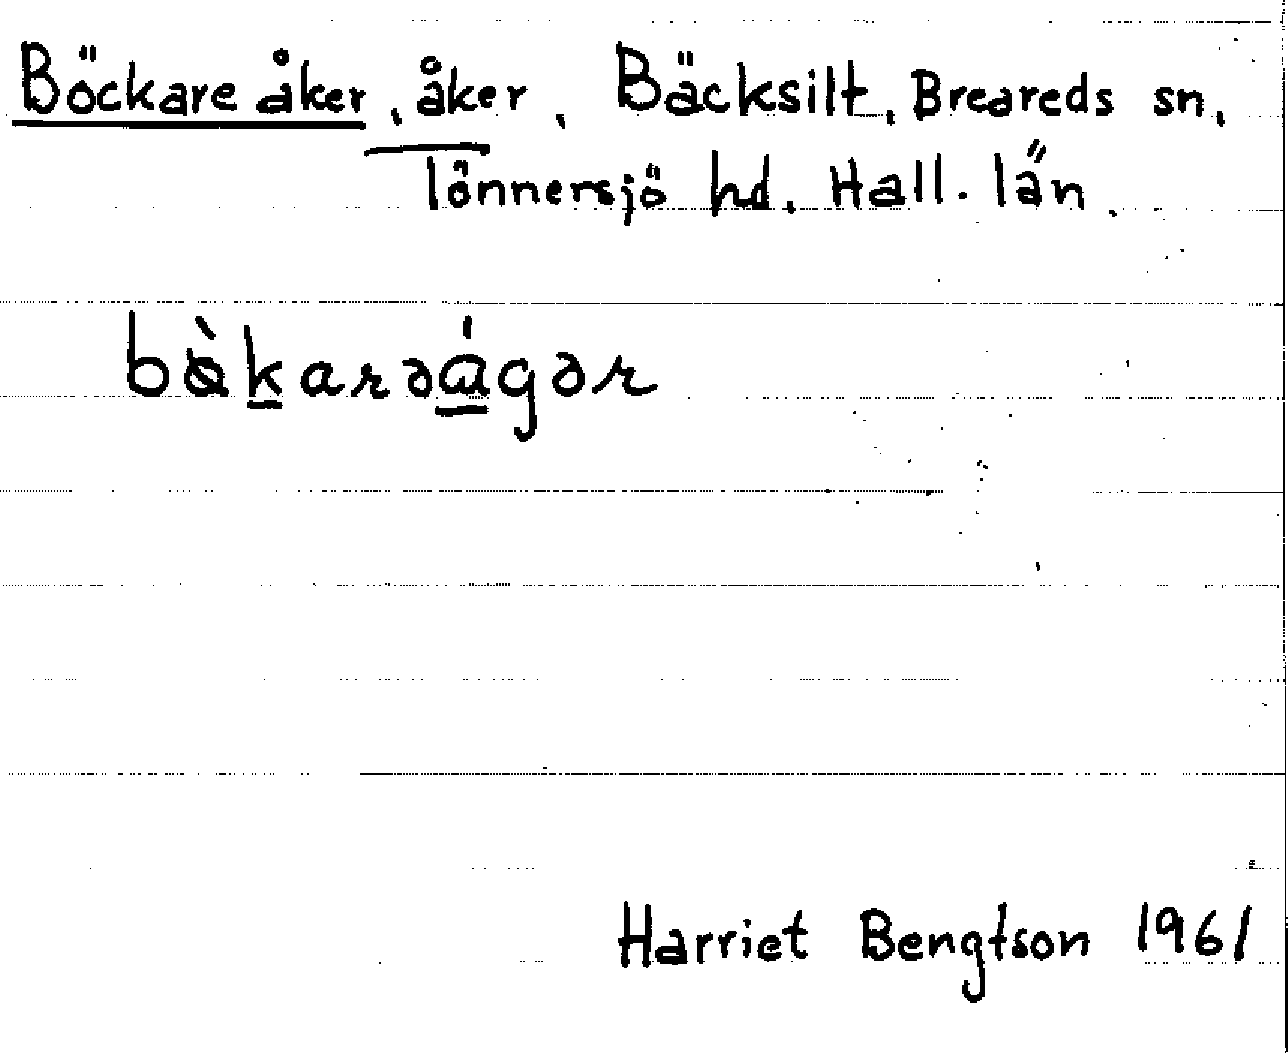 Böckare åker, åker, Bäcksilt, Breareds sn,
Tönnersjö hd, Hall. län.
bàkarəágər
Harriet Bengtson 1961